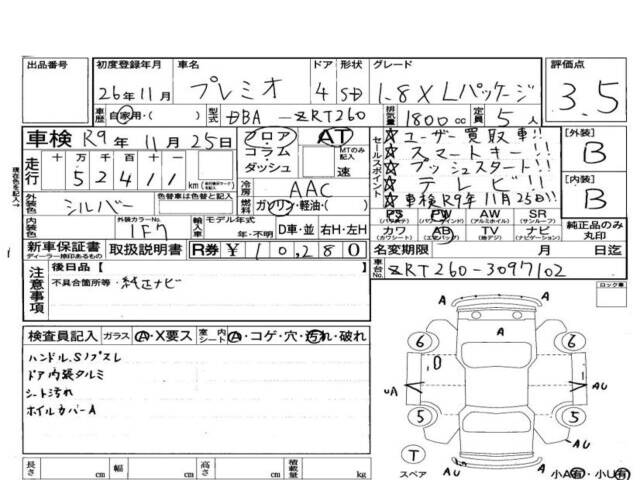 出品番号 初度登録年月 車名 ドア 形状 グレード 評価点
26年11月 プレミオ 4 SD 1.8 X Lパッケージ 3.5
車歴 自家用・( ) 型式 DBA-ZRT260 排気量 1800cc 定員 5人
車検 R9年 11月 25日 フロア コラム ダッシュ AT MTのみ記入 速
セールスポイント
☆ユーザー買取車!!
☆スマートキー!!
☆プッシュスタート!!
☆テレビ!!
☆車検R9年11月25日!!
[外装] B
[内装] B
走行 十 万 千 百 十 一
5 2 4 1 1 km
冷房 AAC
燃料 ガソリン・軽油・( )
外装色 シルバー 色替車は色替と記入
内装色 外装カラーNo. 1F7 輸入車 モデル年式 年・不明 D車・並 右H・左H
PS (パワステ) PW AW (アルミホイル) SR (サンルーフ)
カワ (カワシート) AB (エアバック) TV (地デジ) ナビ (ナビゲーション)
純正品のみ丸印
新車保証書 ディーラー捺印あるもの 取扱説明書 R券 ¥10,280
名変期限 月 日迄
車台No. ZRT260-3097102
注意事項 後日品【 】
不具合箇所等・純正ナビ
ロック車
検査員記入 ガラス A・X要ス 室内シート A・コゲ・穴・汚れ・破れ
ハンドル.Sノブスレ
ドア内装タルミ
シート汚れ
ホイルカバーA
A
A
6 6
D
UA AU
5 5
AU
T
スペア
A
AU
小A有・小U有
長さ cm 幅 cm 高さ cm 積載量 kg